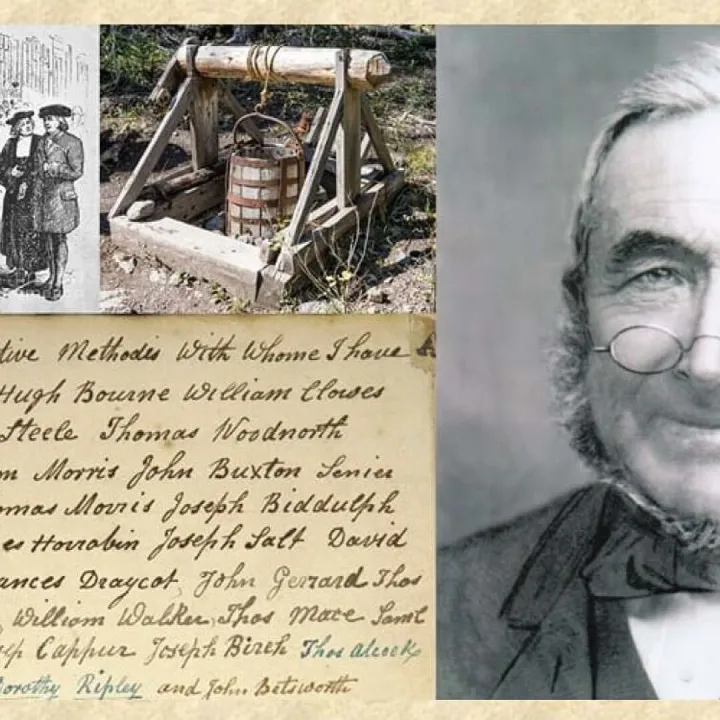 tive Methodis With Whome I have
Hugh Bourne William Clowes
Steele Thomas Woodnorth
m Morris John Buxton Senier
omas Morris Joseph Biddulph
es Horrobin Joseph Salt David
ances Draycot, John Gerrard Thos
William Walker, Thos Mace Saml
ep Cappur Joseph Birch Thos Alcock
Dorothy Ripley and John Betsworth